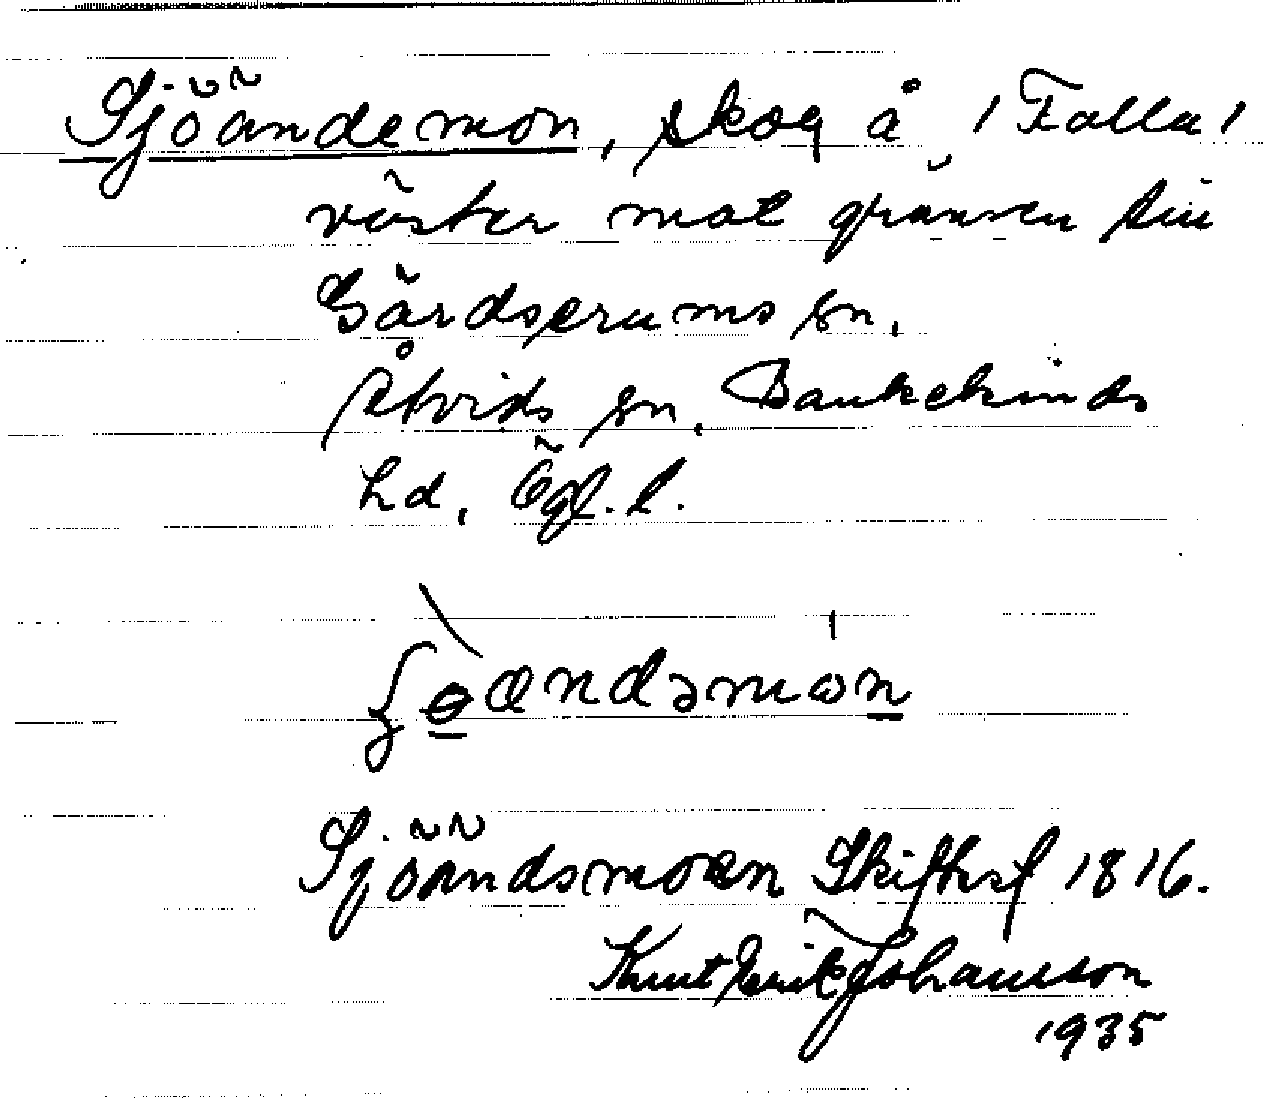 Sjöändemon, skog å /Falla/
väster mot gränsen till
Gärdserums sn.
Åtvids sn, Bankekinds
hd, Ögl. l.
Sjöändsmoen Skifteskf 1816.
Knut Erik Johansson
1935